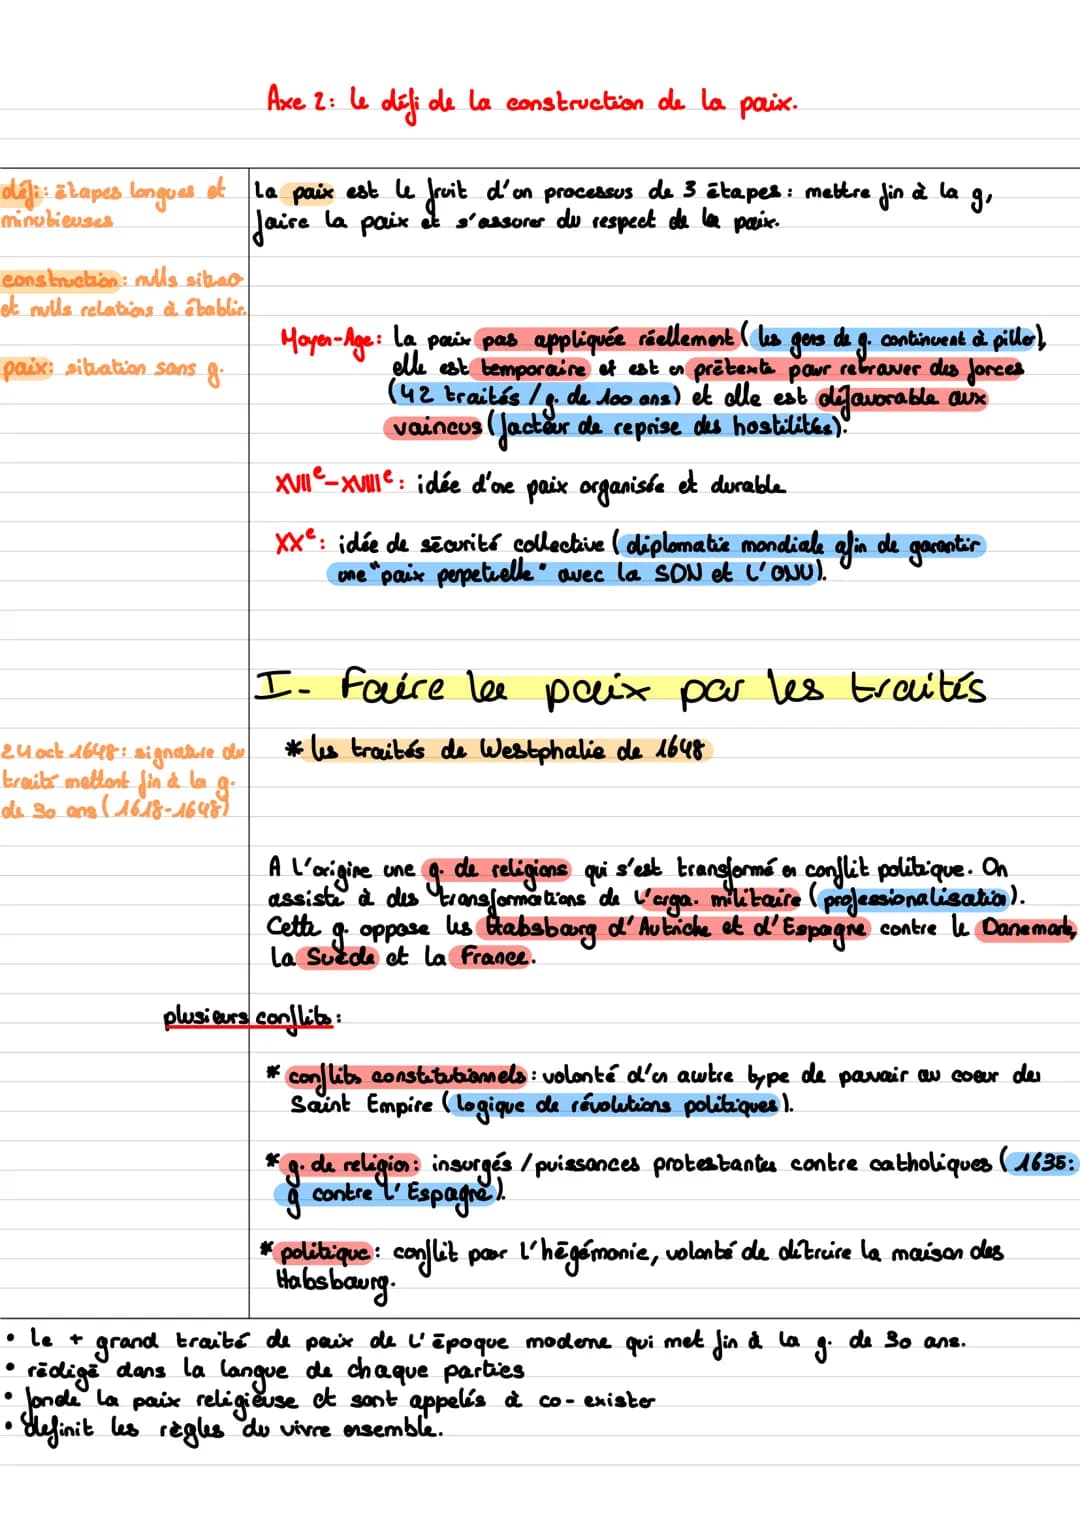 Axe 2: le défi de la construction de la paix.
défi: étapes longues et
minutieuses
construction: nvlls situa°
et nvlls relations à établir.
paix: situation sans g.
La paix est le fruit d'un processus de 3 étapes: mettre fin à la g,
faire la paix et s'assurer du respect de la paix.
Moyen-Age: La paix pas appliquée réellement (les gens de g. continuent à piller),
elle est temporaire et est un prétexte pour retrouver des forces
(42 traités / g. de 100 ans) et elle est défavorable aux
vaincus (facteur de reprise des hostilités).
XVIIe-XVIIIe: idée d'une paix organisée et durable
XXe: idée de sécurité collective (diplomatie mondiale afin de garantir
une "paix perpetuelle" avec la SDN et l'ONU).
I- Faire la paix par les traités
24 oct 1648: signature du
traité mettant fin à la g.
de 30 ans (1618-1648)
* Les traités de Westphalie de 1648
A l'origine une g. de religions qui s'est transformé en conflit politique. On
assiste à des transformations de l'orga. militaire (professionalisation).
Cette g. oppose les Habsbourg d'Autriche et d'Espagne contre le Danemark,
la Suède et la France.
plusieurs conflits:
* conflits constitutionnels: volonté d'un autre type de pouvoir au coeur des
Saint Empire (logique de révolutions politiques).
* g. de religion: insurgés / puissances protestantes contre catholiques (1635:
g contre l'Espagne).
* politique: conflit pour l'hégémonie, volonté de détruire la maison des
Habsbourg.
• Le + grand traité de paix de l'époque moderne qui met fin à la g. de 30 ans.
• rédigé dans la langue de chaque parties
• fonde la paix religieuse et sont appelés à co-exister
• définit les règles du vivre ensemble.